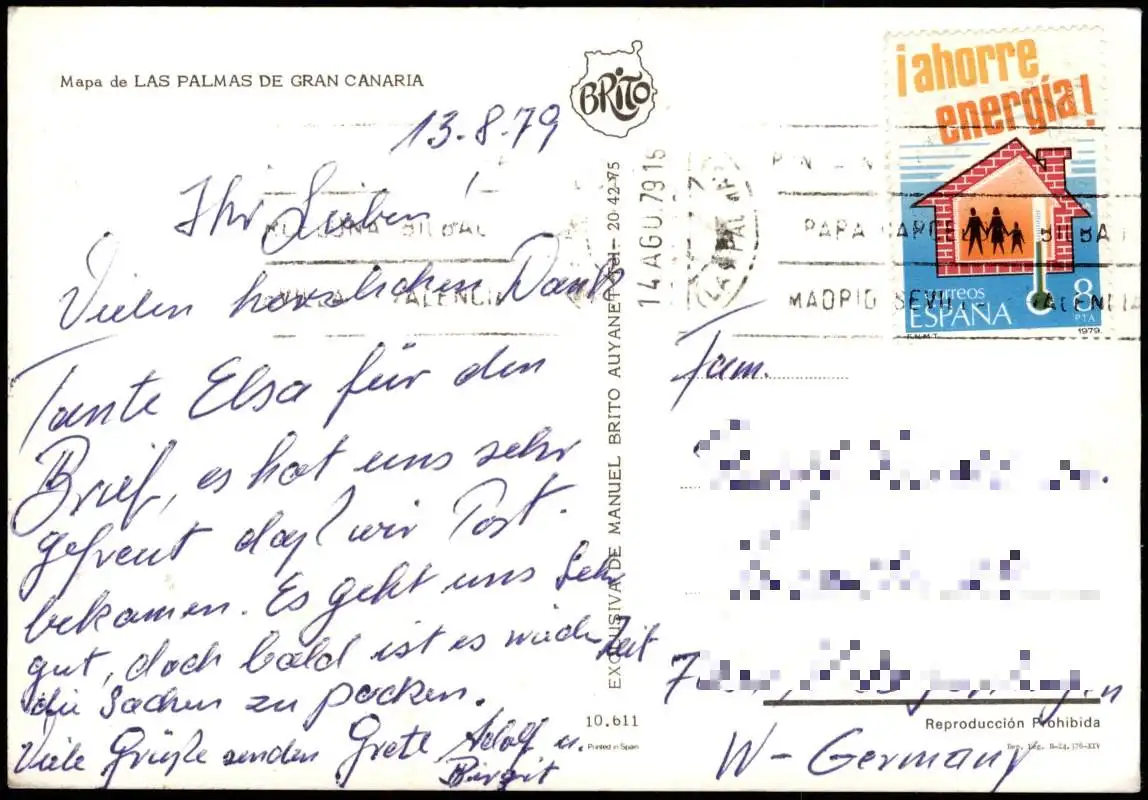 Mapa de LAS PALMAS DE GRAN CANARIA
BRITO
¡ahorre
energía!
correos
ESPAÑA
8
PTA
1979
F.N.M.T.
14 AGO. 79 15
MADRID SEVILLA VALENCIA
13.8.79
Ihr Lieben!
Vielen herzlichen Dank
Tante Elsa für den
Brief, es hat uns sehr
gefreut daß wir Post.
bekamen. Es geht uns Sehr
gut, doch bald ist es wieder Zeit
die Sachen zu packen.
Viele Grüße senden Grete Adolf u.
Birgit
EXCLUSIVA DE MANUEL BRITO AUYANET Tel- 20 42 75
10.611
Printed in Spain
Fam.
W-Germany
Reproducción Prohibida